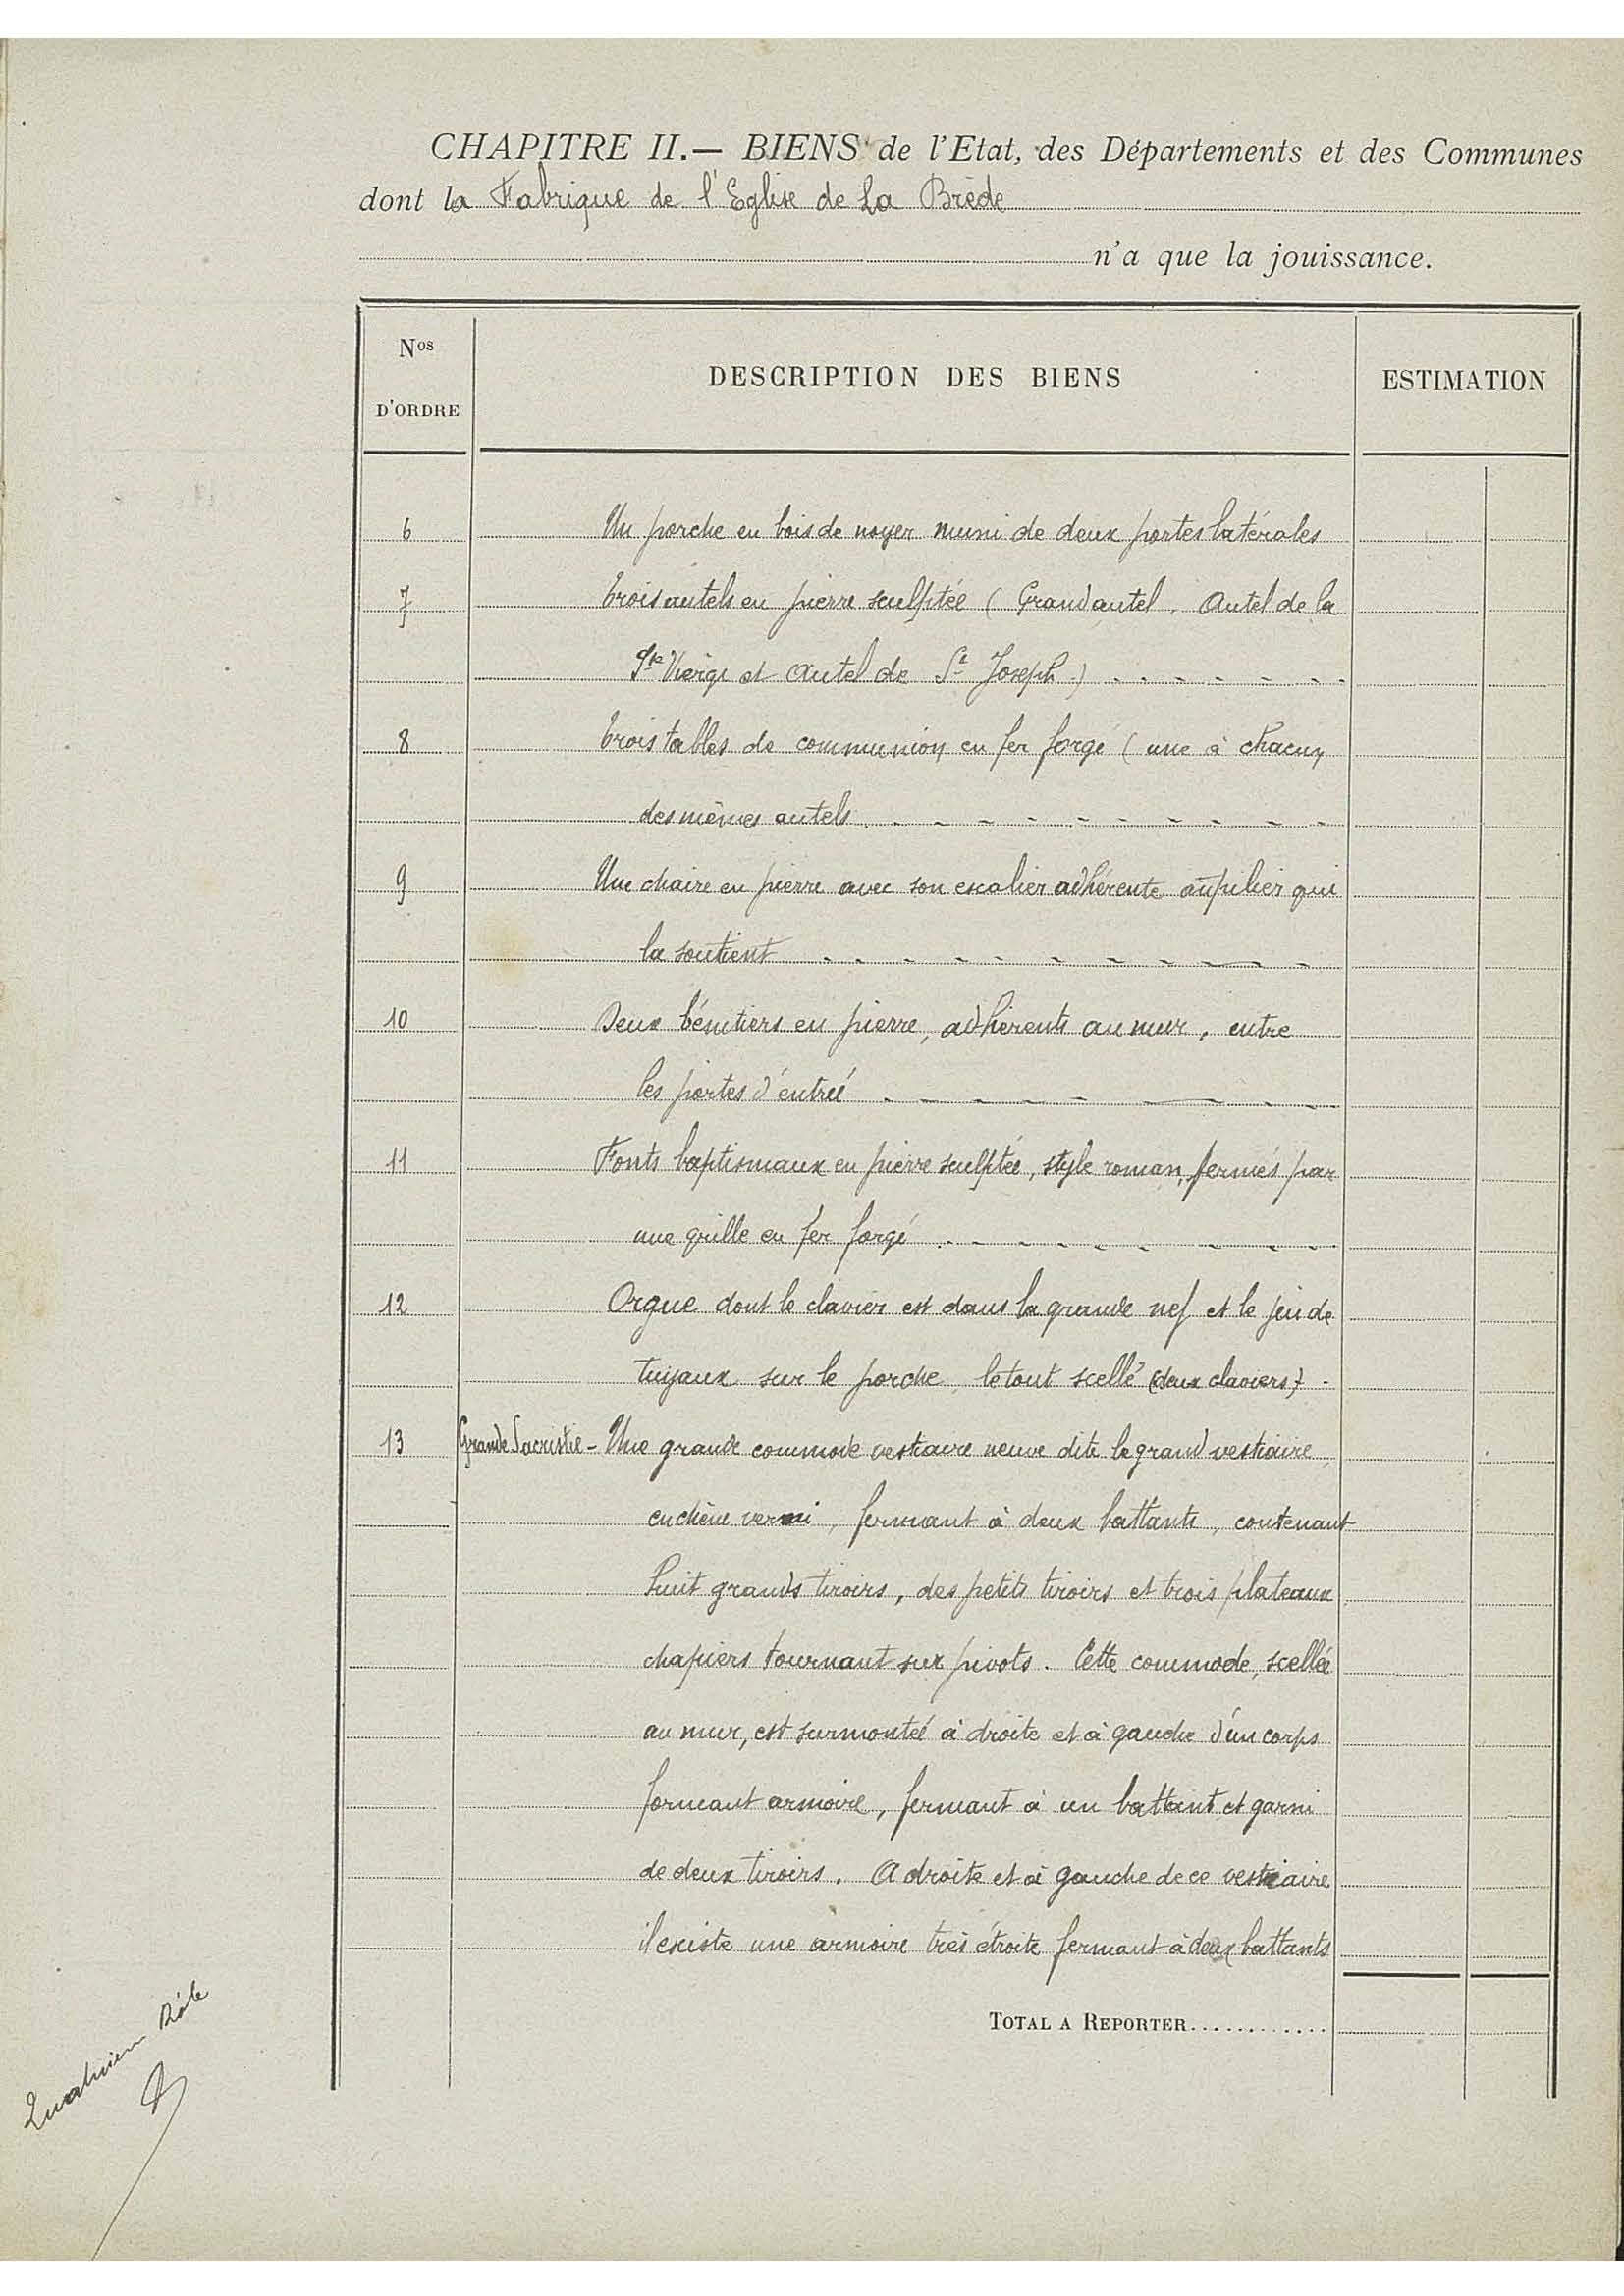 CHAPITRE II.— BIENS de l'Etat, des Départements et des Communes
dont la Fabrique de l'Eglise de La Brède
n'a que la jouissance.
Nos D'ORDRE DESCRIPTION DES BIENS ESTIMATION
6 Un porche en bois de noyer muni de deux portes latérales
7 trois autels en pierre sculptée (Grand autel. Autel de la
Ste Vierge et Autel de St Joseph)
8 trois tables de communion en fer forgé (une à chacun
des mêmes autels
9 Une chaire en pierre avec son escalier adhérente au pilier qui
la soutient
10 Deux bénitiers en pierre, adhérents au mur, entre
les portes d'entrée
11 Fonts baptismaux en pierre sculptée, style roman, fermés par
une grille en fer forgé
12 Orgue dont le clavier est dans la grande nef et le jeu de
tuyaux sur le porche, le tout scellé (deux claviers)
13 Grande Sacristie - Une grande commode vestiaire neuve dite le grand vestiaire,
en chêne verni, fermant à deux battants, contenant
huit grands tiroirs, des petits tiroirs et trois plateaux
chapiers tournant sur pivots. Cette commode, scellée
au mur, est surmontée à droite et à gauche d'un corps
formant armoire, fermant à un battant et garni
de deux tiroirs. A droite et à gauche de ce vestiaire
il existe une armoire très étroite fermant à deux battants
TOTAL A REPORTER............
Quatrième Rôle